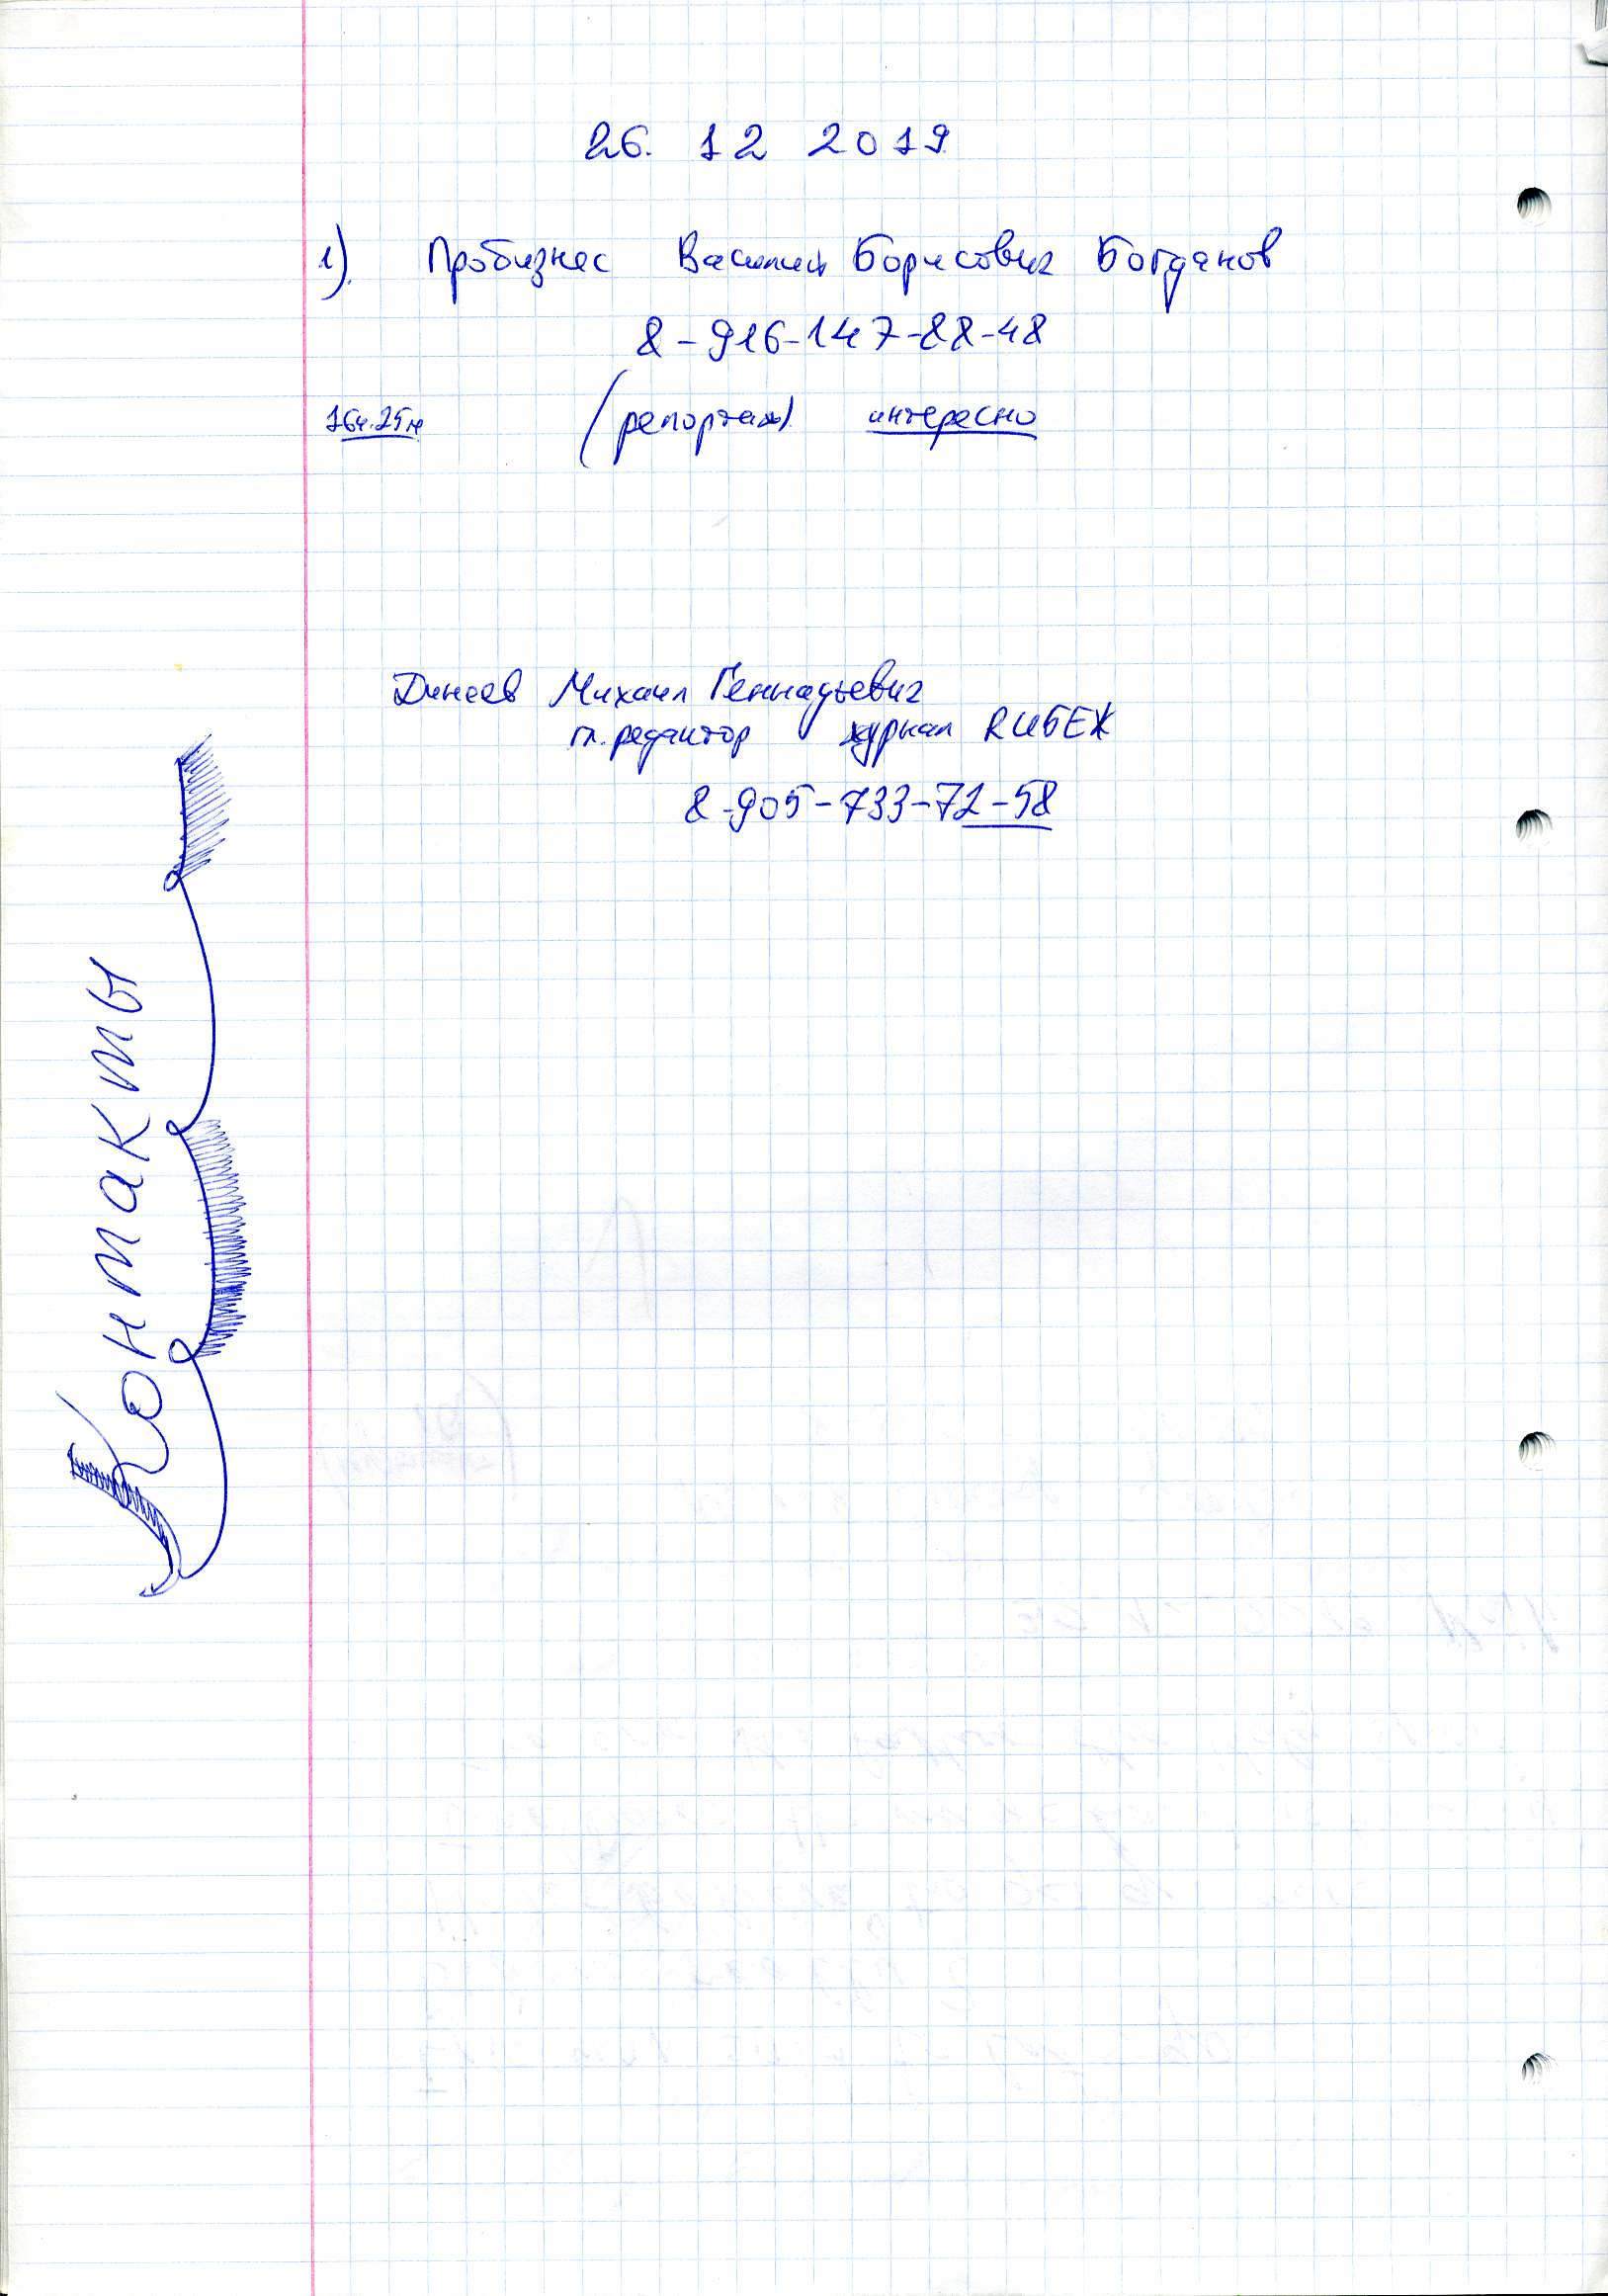 26. 12 2019
1). Пробизнес Василий Борисович Богданов
8-916-147-88-48
16ч.25м (репортаж) интересно
Динеев Михаил Геннадьевич
гл. редактор журнал RUБЕЖ
8-905-733-72-58
Контакты